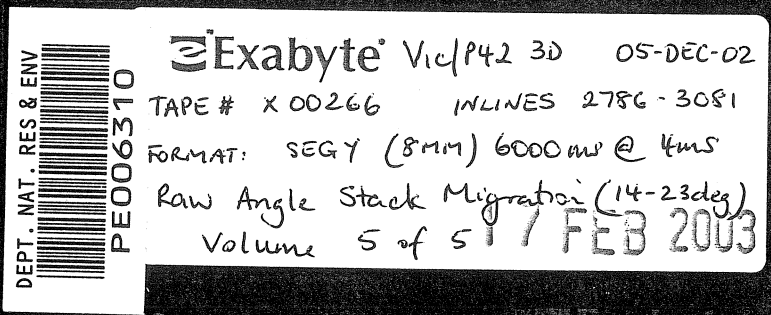 DEPT. NAT. RES & ENV
PE006310
Exabyte Vic/P42 3D 05-DEC-02
TAPE # X00266 INLINES 2786-3081
FORMAT: SEGY (8MM) 6000ms @ 4ms
Raw Angle Stack Migration (14-23deg)
Volume 5 of 5
17 FEB 2003